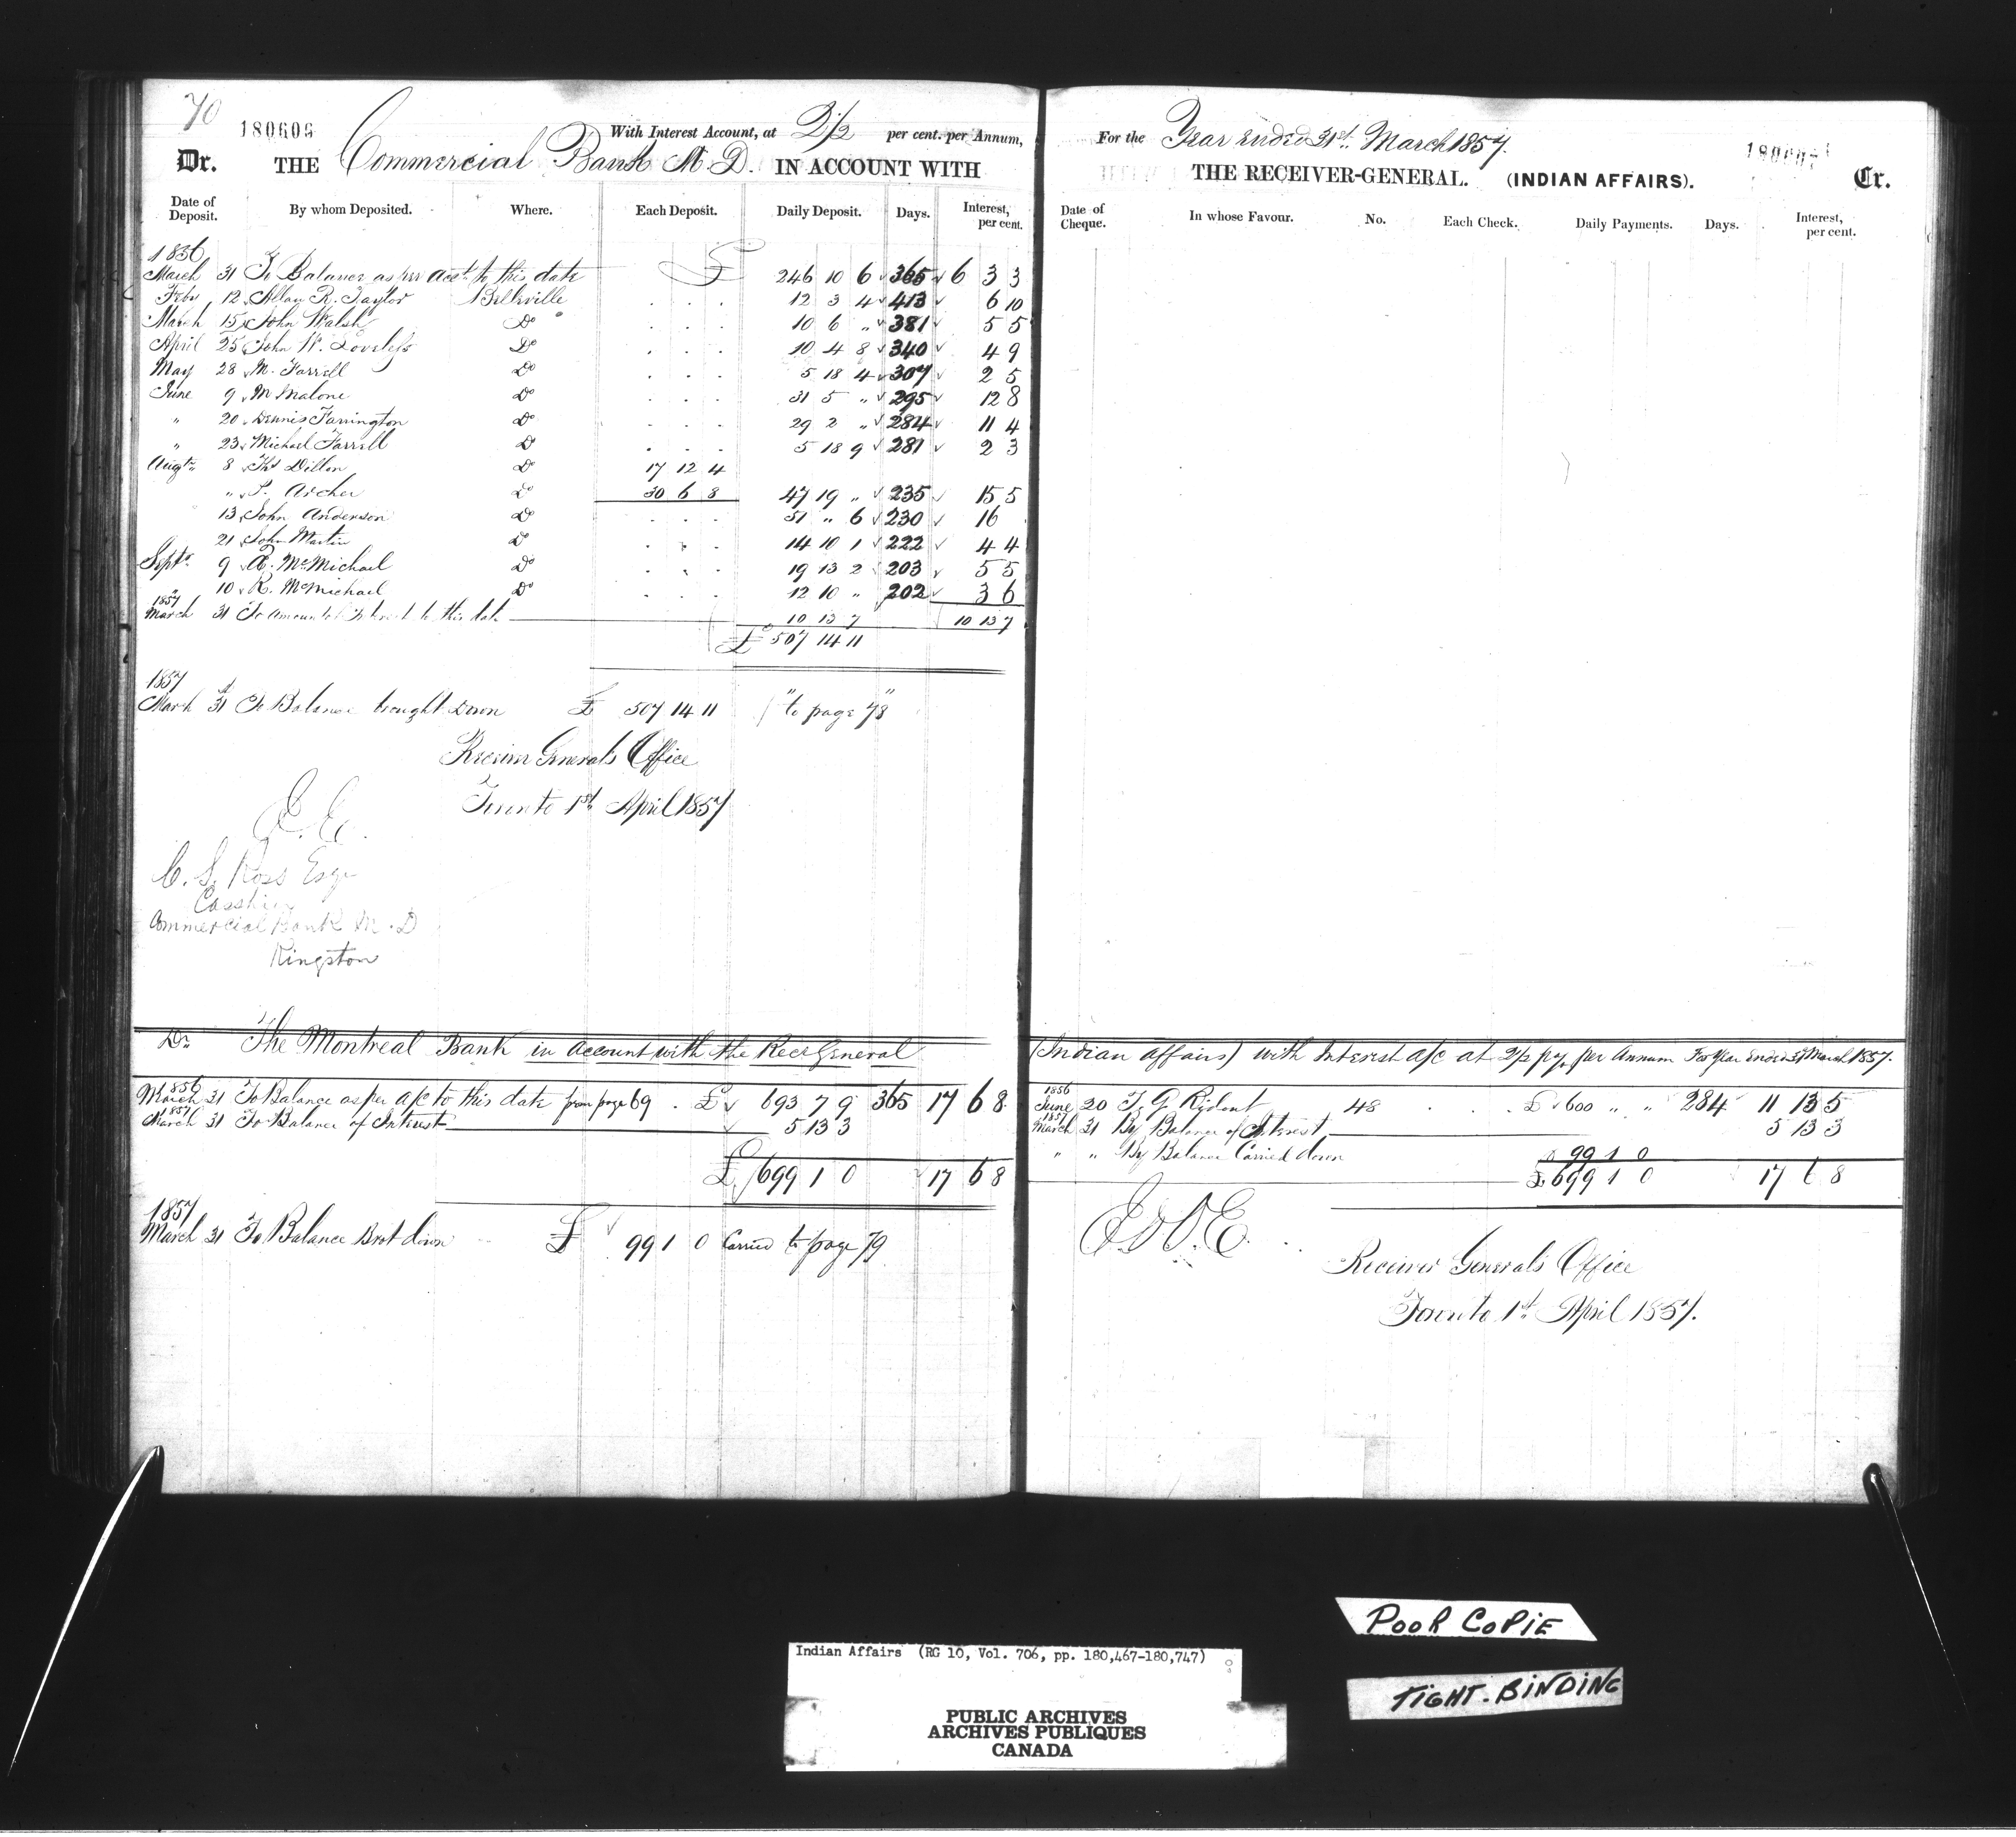 70
180606
With Interest Account, at 2 1/2 per cent. per Annum,
Dr. THE Commercial Bank M. D. IN ACCOUNT WITH
Date of Deposit. By whom Deposited. Where. Each Deposit. Daily Deposit. Days. Interest, per cent.
1856
March 31 To Balance as per acct. to this date £ 246 10 6 365 6 3 3
Feby 12 Allan R. Taylor Belleville . . . 12 3 4 413 6 10
March 15 John Walsh Do . . . 10 6 " 381 5 5
April 25 John W. Loveless Do . . . 10 4 8 340 4 9
May 28 M. Farrell Do . . . 5 18 4 307 2 5
June 9 M Malone Do . . . 31 5 " 295 12 8
" 20 Dennis Farrington Do . . . 29 2 " 284 11 4
" 23 Michael Farrell Do . . . 5 18 9 281 2 3
Augt. 8 Thos Dillon Do 17 12 4
" " P. Archer Do 30 6 8 47 19 " 235 15 5
" 13 John Anderson Do . . . 51 " 6 230 16
21 John Martin Do . . . 14 10 1 222 4 4
Septr. 9 A. McMichael Do . . . 19 13 2 203 5 5
" 10 R. McMichael Do . . . 12 10 " 202 3 6
1857
March 31 To Amount of Interest to this date 10 13 7 10 13 7
£ 507 14 11
1857
March 31 To Balance brought Down £ 507 14 11 "to page 78"
Receiver General's Office
Toronto 1st April 1857
E. E.
C. S. Ross Esqr
Cashier
Commercial Bank M. D
Kingston
Dr. The Montreal Bank in account with the Recr General
1856
March 31 To Balance as per a/c to this date from page 69 . £ 693 7 9 365 17 6 8
1857
March 31 To Balance of Interest 5 13 3
£ 699 1 0 17 6 8
1857
March 31 To Balance Brot down £ 99 1 0 Carried to page 79
For the Year ended 31st. March 1857.
180607
THE RECEIVER-GENERAL. (INDIAN AFFAIRS). Cr.
Date of Cheque. In whose Favour. No. Each Check. Daily Payments. Days. Interest, per cent.
(Indian Affairs) with Interest a/c at 2 1/2 per Annum For Year ended 31 March 1857.
1856
June 20 T. G. Ridout 48 . . . £ 600 " " 284 11 13 5
1857
March 31 By Balance of Interest 5 13 3
" " By Balance Carried down 99 1 0
£ 699 1 0 17 6 8
E. & O. E.
Receiver General's Office
Toronto 1st April 1857.
POOR COPIE
TIGHT-BINDING
Indian Affairs (RG 10, Vol. 706, pp. 180,467-180,747)
PUBLIC ARCHIVES
ARCHIVES PUBLIQUES
CANADA